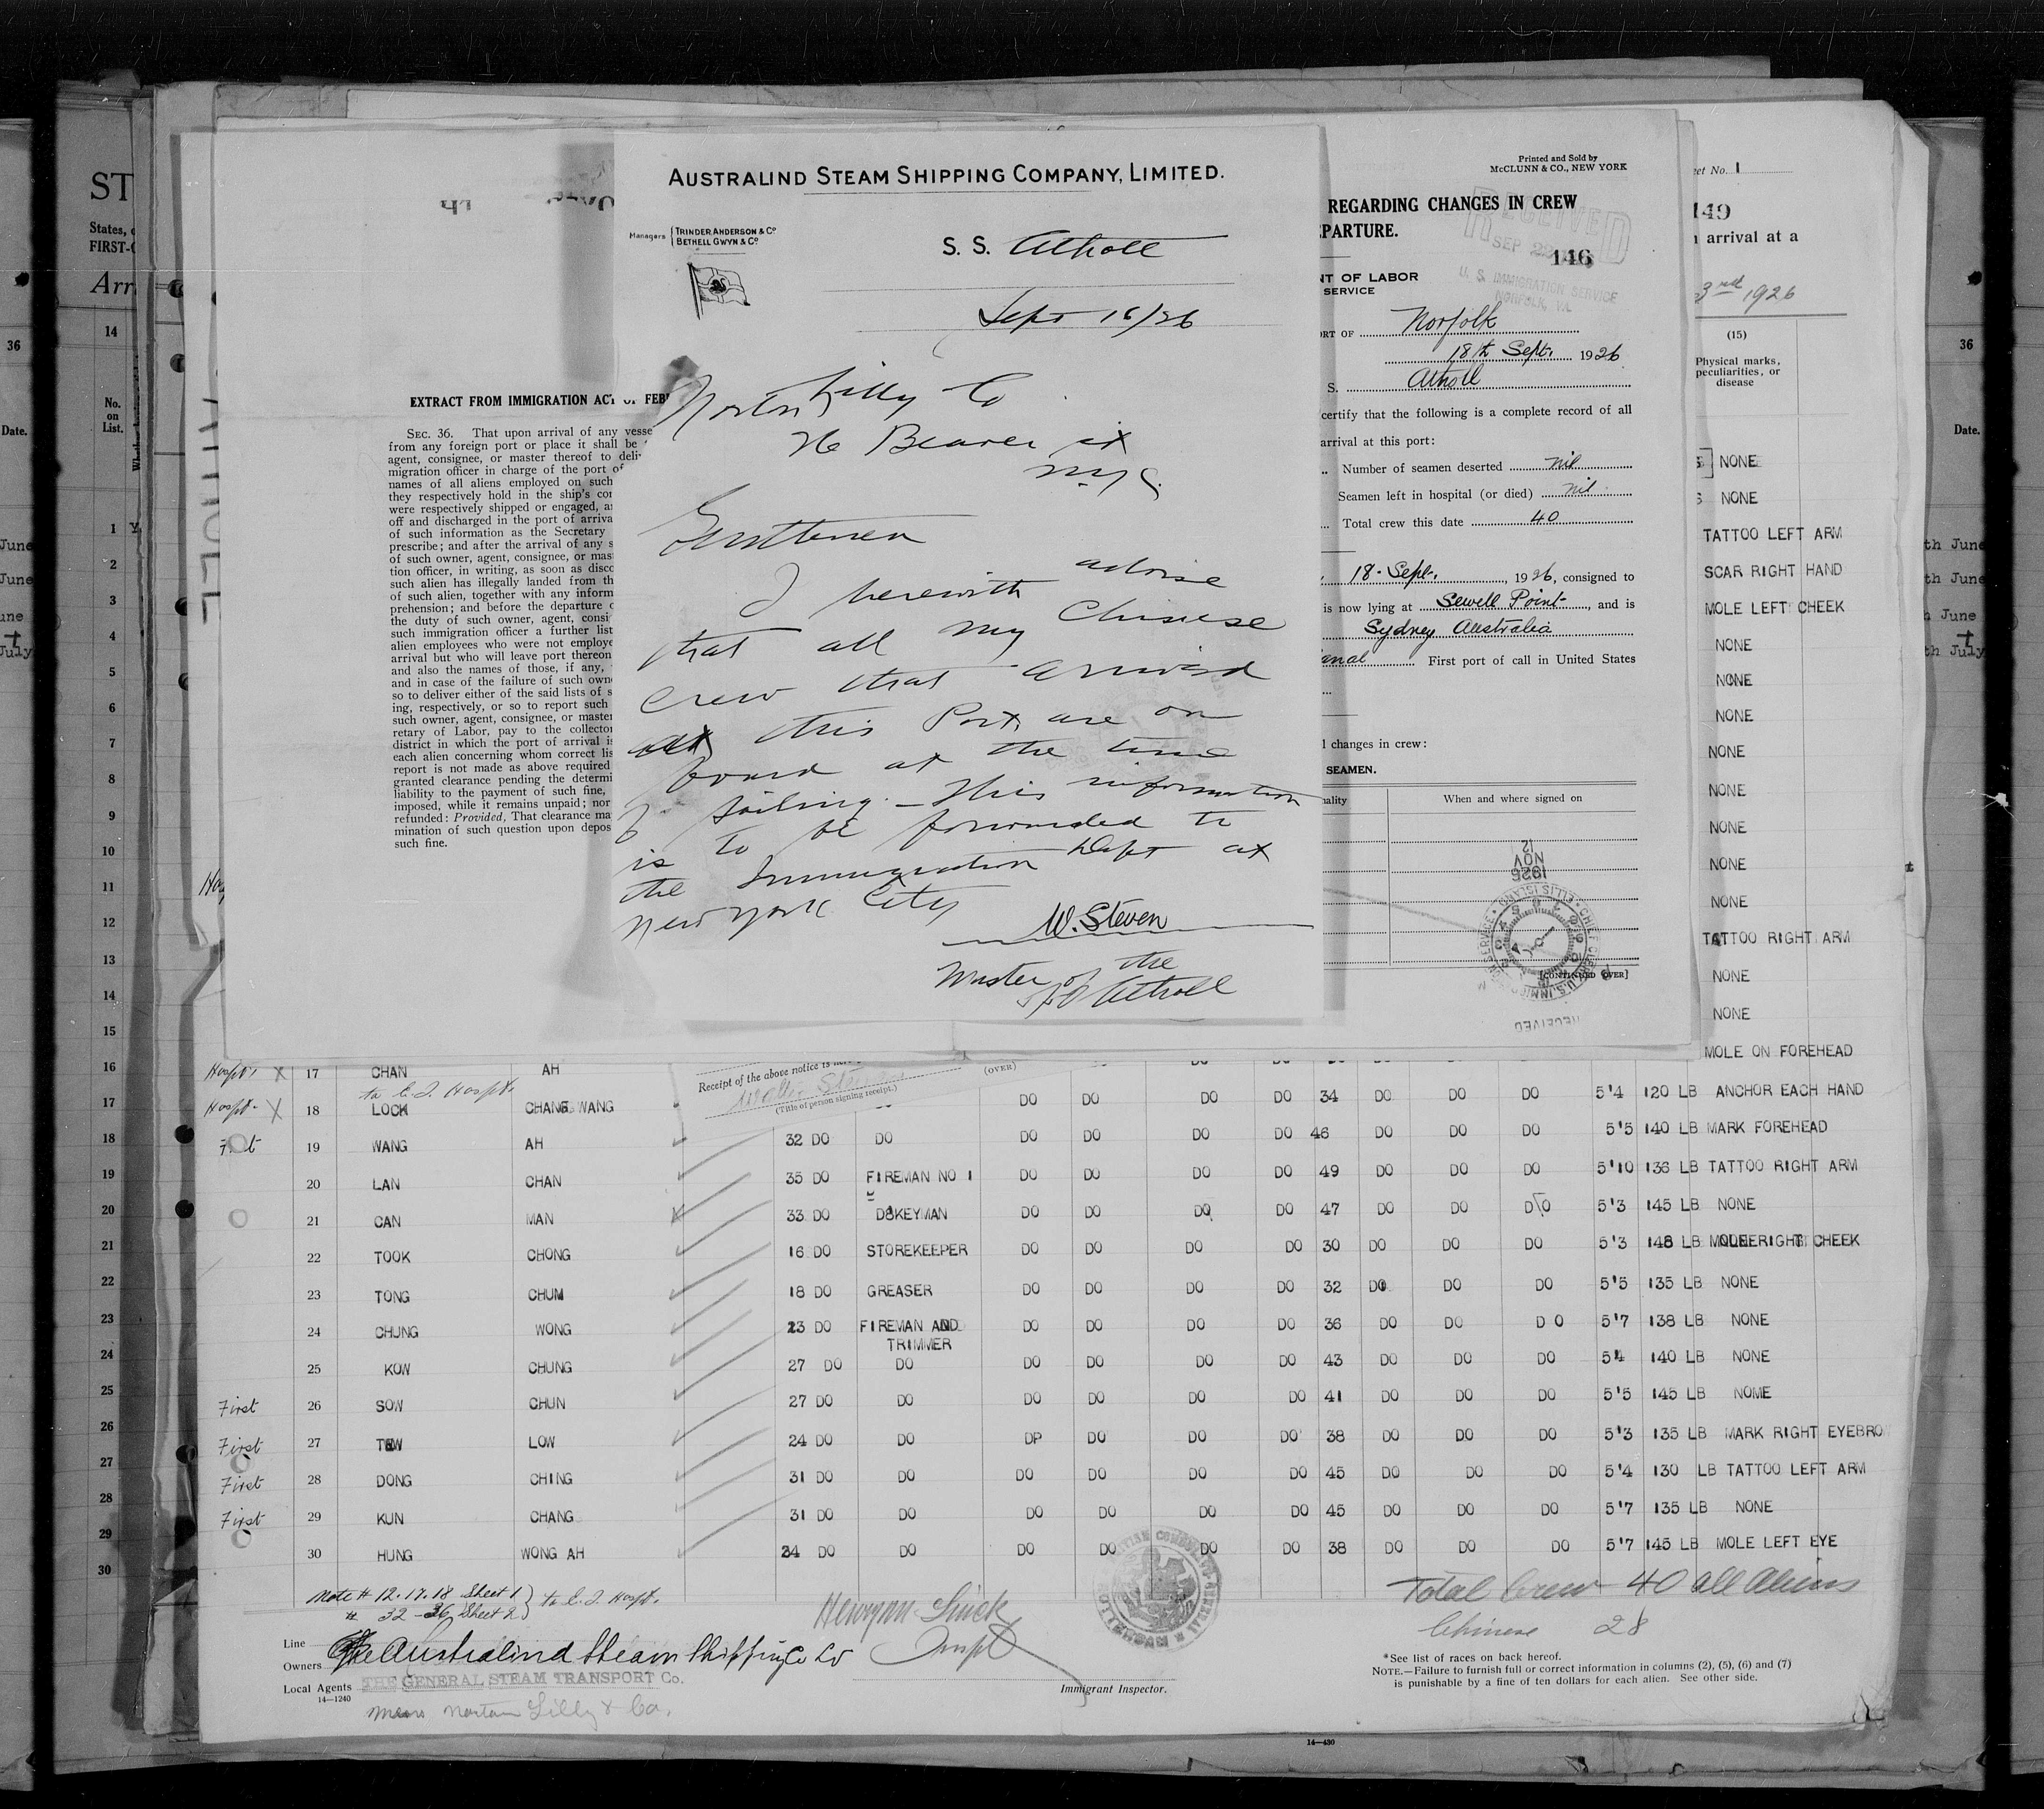 AUSTRALIND STEAM SHIPPING COMPANY, LIMITED.
Managers TRINDER, ANDERSON & Co
BETHELL GWYN & Co
S. S. Atholl
Sept 16/26
Norton Lilly Co
26 Beaver st
N.Y.C.
Gentlemen
I herewith advise
that all my Chinese
crew that arrived
at this Port are on
board at the time
of sailing. - This information
is to be forwarded to
the Immigration Dept at
New York City
W. Steven
Master of the
S/S Atholl
EXTRACT FROM IMMIGRATION ACT OF FEB
SEC. 36. That upon arrival of any vesse
from any foreign port or place it shall be
agent, consignee, or master thereof to deli
migration officer in charge of the port of
names of all aliens employed on such
they respectively hold in the ship's co
were respectively shipped or engaged, a
off and discharged in the port of arriva
of such information as the Secretary
prescribe; and after the arrival of any s
of such owner, agent, consignee, or mas
tion officer, in writing, as soon as disco
such alien has illegally landed from th
of such alien, together with any inform
prehension; and before the departure o
the duty of such owner, agent, consi
such immigration officer a further list
alien employees who were not employe
arrival but who will leave port thereon
and also the names of those, if any,
and in case of the failure of such own
so to deliver either of the said lists of s
ing, respectively, or so to report such
such owner, agent, consignee, or master
retary of Labor, pay to the collector
district in which the port of arrival is
each alien concerning whom correct lis
report is not made as above required
granted clearance pending the determi
liability to the payment of such fine,
imposed, while it remains unpaid; nor
refunded: Provided, That clearance ma
mination of such question upon depos
such fine.
Printed and Sold by
McCLUNN & CO., NEW YORK
REGARDING CHANGES IN CREW
PARTURE.
RECEIVED
SEP 22
146
U. S. IMMIGRATION SERVICE
NORFOLK, VA.
NT OF LABOR
SERVICE
ORT OF Norfolk
18th Sept. 1926
S. Atholl
certify that the following is a complete record of all
arrival at this port:
Number of seamen deserted nil
Seamen left in hospital (or died) nil
Total crew this date 40
18 Sept., 1926, consigned to
is now lying at Sewell Point, and is
Sydney Australia
anal First port of call in United States
l changes in crew:
SEAMEN.
ality When and where signed on
1926
NOV
12
[CONTINUED OVER]
RECEIVED
eet No. 1
149
n arrival at a
3rd 1926
(15)
Physical marks,
peculiarities, or
disease
NONE
NONE
TATTOO LEFT ARM
SCAR RIGHT HAND
MOLE LEFT CHEEK
NONE
NONE
NONE
NONE
NONE
NONE
NONE
NONE
TATTOO RIGHT ARM
NONE
NONE
MOLE ON FOREHEAD
ST
States,
FIRST-
Arr
14
No.
on
List.
36
Date.
Receipt of the above notice is her
(OVER)
(Title of person signing receipt.)
Hospt. X 17 CHAN AH
to E. I. Hospt.
Hospt. X 18 LOCK CHANG WANG DO DO DO DO 34 DO DO DO 5'4 120 LB ANCHOR EACH HAND
First 19 WANG AH 32 DO DO DO DO DO DO 46 DO DO DO 5'5 140 LB MARK FOREHEAD
20 LAN CHAN 35 DO FIREMAN NO 1 DO DO DO DO 49 DO DO DO 5'10 136 LB TATTOO RIGHT ARM
21 CAN MAN 33 DO DOKEYMAN DO DO DO DO 47 DO DO DO 5'3 145 LB NONE
22 TOOK CHONG 16 DO STOREKEEPER DO DO DO DO 30 DO DO DO 5'3 148 LB MOLE RIGHT CHEEK
23 TONG CHUM 18 DO GREASER DO DO DO DO 32 DO DO DO 5'5 135 LB NONE
24 CHUNG WONG 23 DO FIREMAN AND TRIMMER DO DO DO DO 36 DO DO DO 5'7 138 LB NONE
25 KOW CHUNG 27 DO DO DO DO DO DO 43 DO DO DO 5'4 140 LB NONE
First 26 SOW CHUN 27 DO DO DO DO DO DO 41 DO DO DO 5'5 145 LB NOME
First 27 TEW LOW 24 DO DO DP DO DO DO 38 DO DO DO 5'3 135 LB MARK RIGHT EYEBRO
First 28 DONG CHING 31 DO DO DO DO DO DO 45 DO DO DO 5'4 130 LB TATTOO LEFT ARM
First 29 KUN CHANG 31 DO DO DO DO DO DO 45 DO DO DO 5'7 135 LB NONE
30 HUNG WONG AH 24 DO DO DO DO DO DO 38 DO DO DO 5'7 145 LB MOLE LEFT EYE
Note # 12.17.18 Sheet 1 } to E. I. Hospt.
# 32-36 Sheet 2
Total Crew 40 all Aliens
Chinese 28
Line
Owners The Australind Steam Shipping Co Ld
Local Agents THE GENERAL STEAM TRANSPORT Co.
14—1240
Messrs Norton Lilly & Co.
Immigrant Inspector.
*See list of races on back hereof.
NOTE.—Failure to furnish full or correct information in columns (2), (5), (6) and (7)
is punishable by a fine of ten dollars for each alien. See other side.
14—430